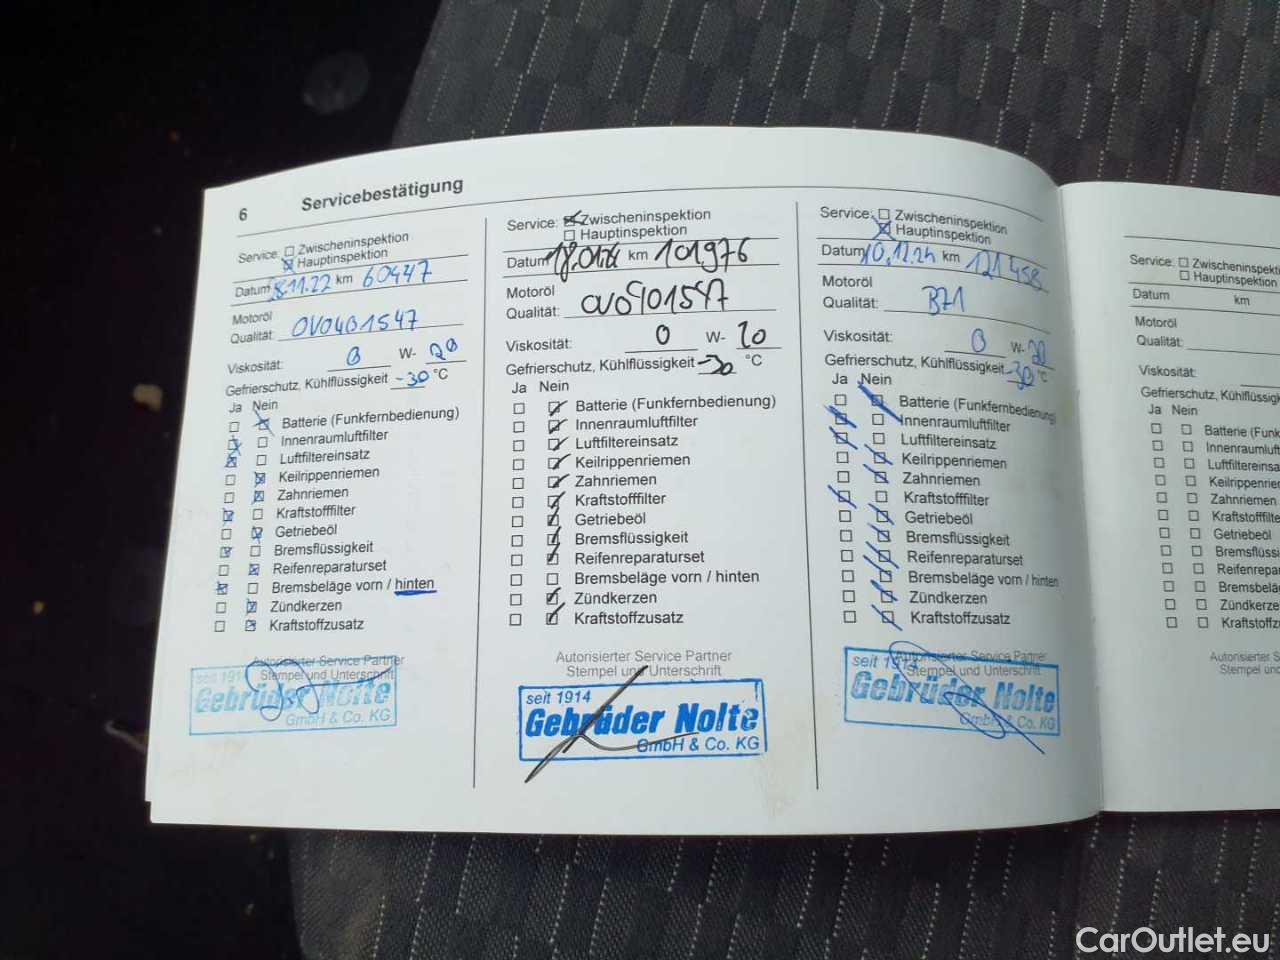 6 Servicebestätigung
Service: Zwischeninspektion
Hauptinspektion
Datum 8.11.22 km 60447
Motoröl
Qualität: OV0401547
Viskosität: 0 W- 20
Gefrierschutz, Kühlflüssigkeit -30 °C
Ja Nein
Batterie (Funkfernbedienung)
Innenraumluftfilter
Luftfiltereinsatz
Keilrippenriemen
Zahnriemen
Kraftstofffilter
Getriebeöl
Bremsflüssigkeit
Reifenreparaturset
Bremsbeläge vorn / hinten
Zündkerzen
Kraftstoffzusatz
Autorisierter Service Partner
Stempel und Unterschrift
seit 1914
Gebrüder Nolte
GmbH & Co. KG
Service: Zwischeninspektion
Hauptinspektion
Datum 18.01.24 km 101976
Motoröl
Qualität: OV0401547
Viskosität: 0 W- 20
Gefrierschutz, Kühlflüssigkeit -30 °C
Ja Nein
Batterie (Funkfernbedienung)
Innenraumluftfilter
Luftfiltereinsatz
Keilrippenriemen
Zahnriemen
Kraftstofffilter
Getriebeöl
Bremsflüssigkeit
Reifenreparaturset
Bremsbeläge vorn / hinten
Zündkerzen
Kraftstoffzusatz
Autorisierter Service Partner
Stempel und Unterschrift
seit 1914
Gebrüder Nolte
GmbH & Co. KG
Service: Zwischeninspektion
Hauptinspektion
Datum 10.12.24 km 121458
Motoröl
Qualität: B71
Viskosität: 0 W- 20
Gefrierschutz, Kühlflüssigkeit -30 °C
Ja Nein
Batterie (Funkfernbedienung)
Innenraumluftfilter
Luftfiltereinsatz
Keilrippenriemen
Zahnriemen
Kraftstofffilter
Getriebeöl
Bremsflüssigkeit
Reifenreparaturset
Bremsbeläge vorn / hinten
Zündkerzen
Kraftstoffzusatz
Autorisierter Service Partner
Stempel und Unterschrift
seit 1914
Gebrüder Nolte
GmbH & Co. KG
Service: Zwischeninspekti
Hauptinspektion
Datum km
Motoröl
Qualität:
Viskosität:
Gefrierschutz, Kühlflüssigk
Ja Nein
Batterie (Funk
Innenraumluft
Luftfiltereins
Keilrippenrie
Zahnriemen
Kraftstofffilt
Getriebeöl
Bremsflüss
Reifenrepa
Bremsbelä
Zündkerze
Kraftstoffzu
Autorisierter S
Stempel u
CarOutlet.eu